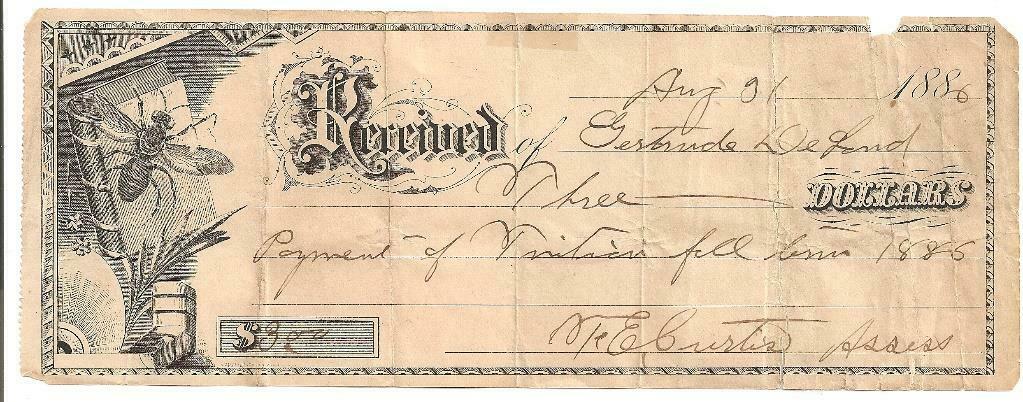 Aug 31 1886
Received of Gertrude DeLand
Three DOLLARS
Payment of Tuition fall term 1886
$3.00
E Curtis Assess